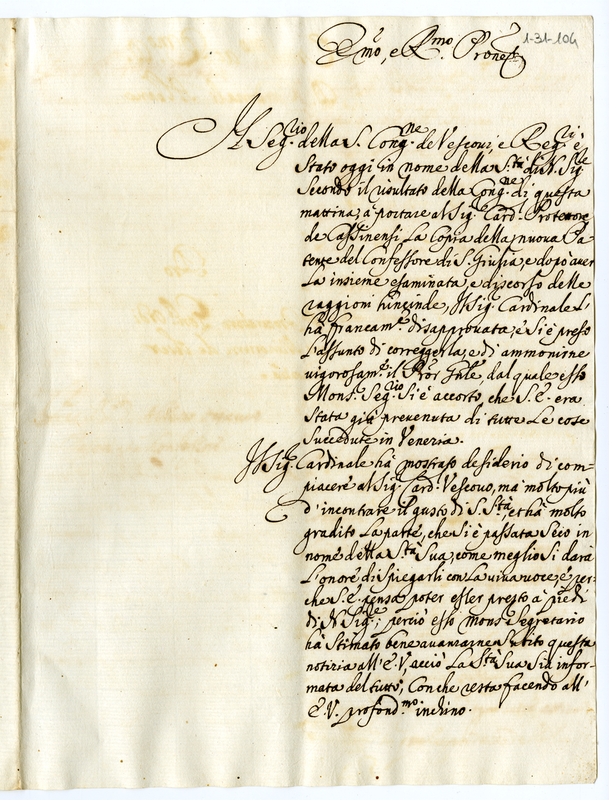 1-31-104
Em̃o, e Rmo. Prone
Il Segrio. della S. Congne. de Vescovi, e Regri. è
stato oggi in nome della S.tà di N. Sigre
secondo il risultato della Congne. di questa
mattina, à portare al Sig. Card. Protettore
de Cassinensi La Copia della nuova Pa
tente del Confessore di S. Giusia, e dopo aver
La insieme esaminata, e discorso delle
raggioni hincinde, Il Sig. Cardinale L'
hà francamte. disapprovata, e si è preso
L'assunto di correggerla, e di ammonirne
vigorosamte. il Pror Gnle, dal quale esso
Mons. Segrio si è accorto, che S.E. era
stata già prevenuta di tutte Le cose
succedute in Venezia.
Il Sig. Cardinale hà mostrato desiderio di com-
piacere al Sig. Card. Vescovo, ma molto più
d'incontrare il gusto di S. Stà, et hà molto
gradito La parte, che si è passata seco in
nome della Stà Sua, come meglio si darà
L'onore di spiegarli con La viva voce, e per-
che S.E. pensa poter esser presto à piedi
di N. Sigre; perciò esso Mons. Segretario
hà stimato bene avanzarne subito questa
notizia all'E.V., acciò La Stà Sua sia infor-
mata del tutto; Con che resta facendo all'
E.V. profondmo. inchino.